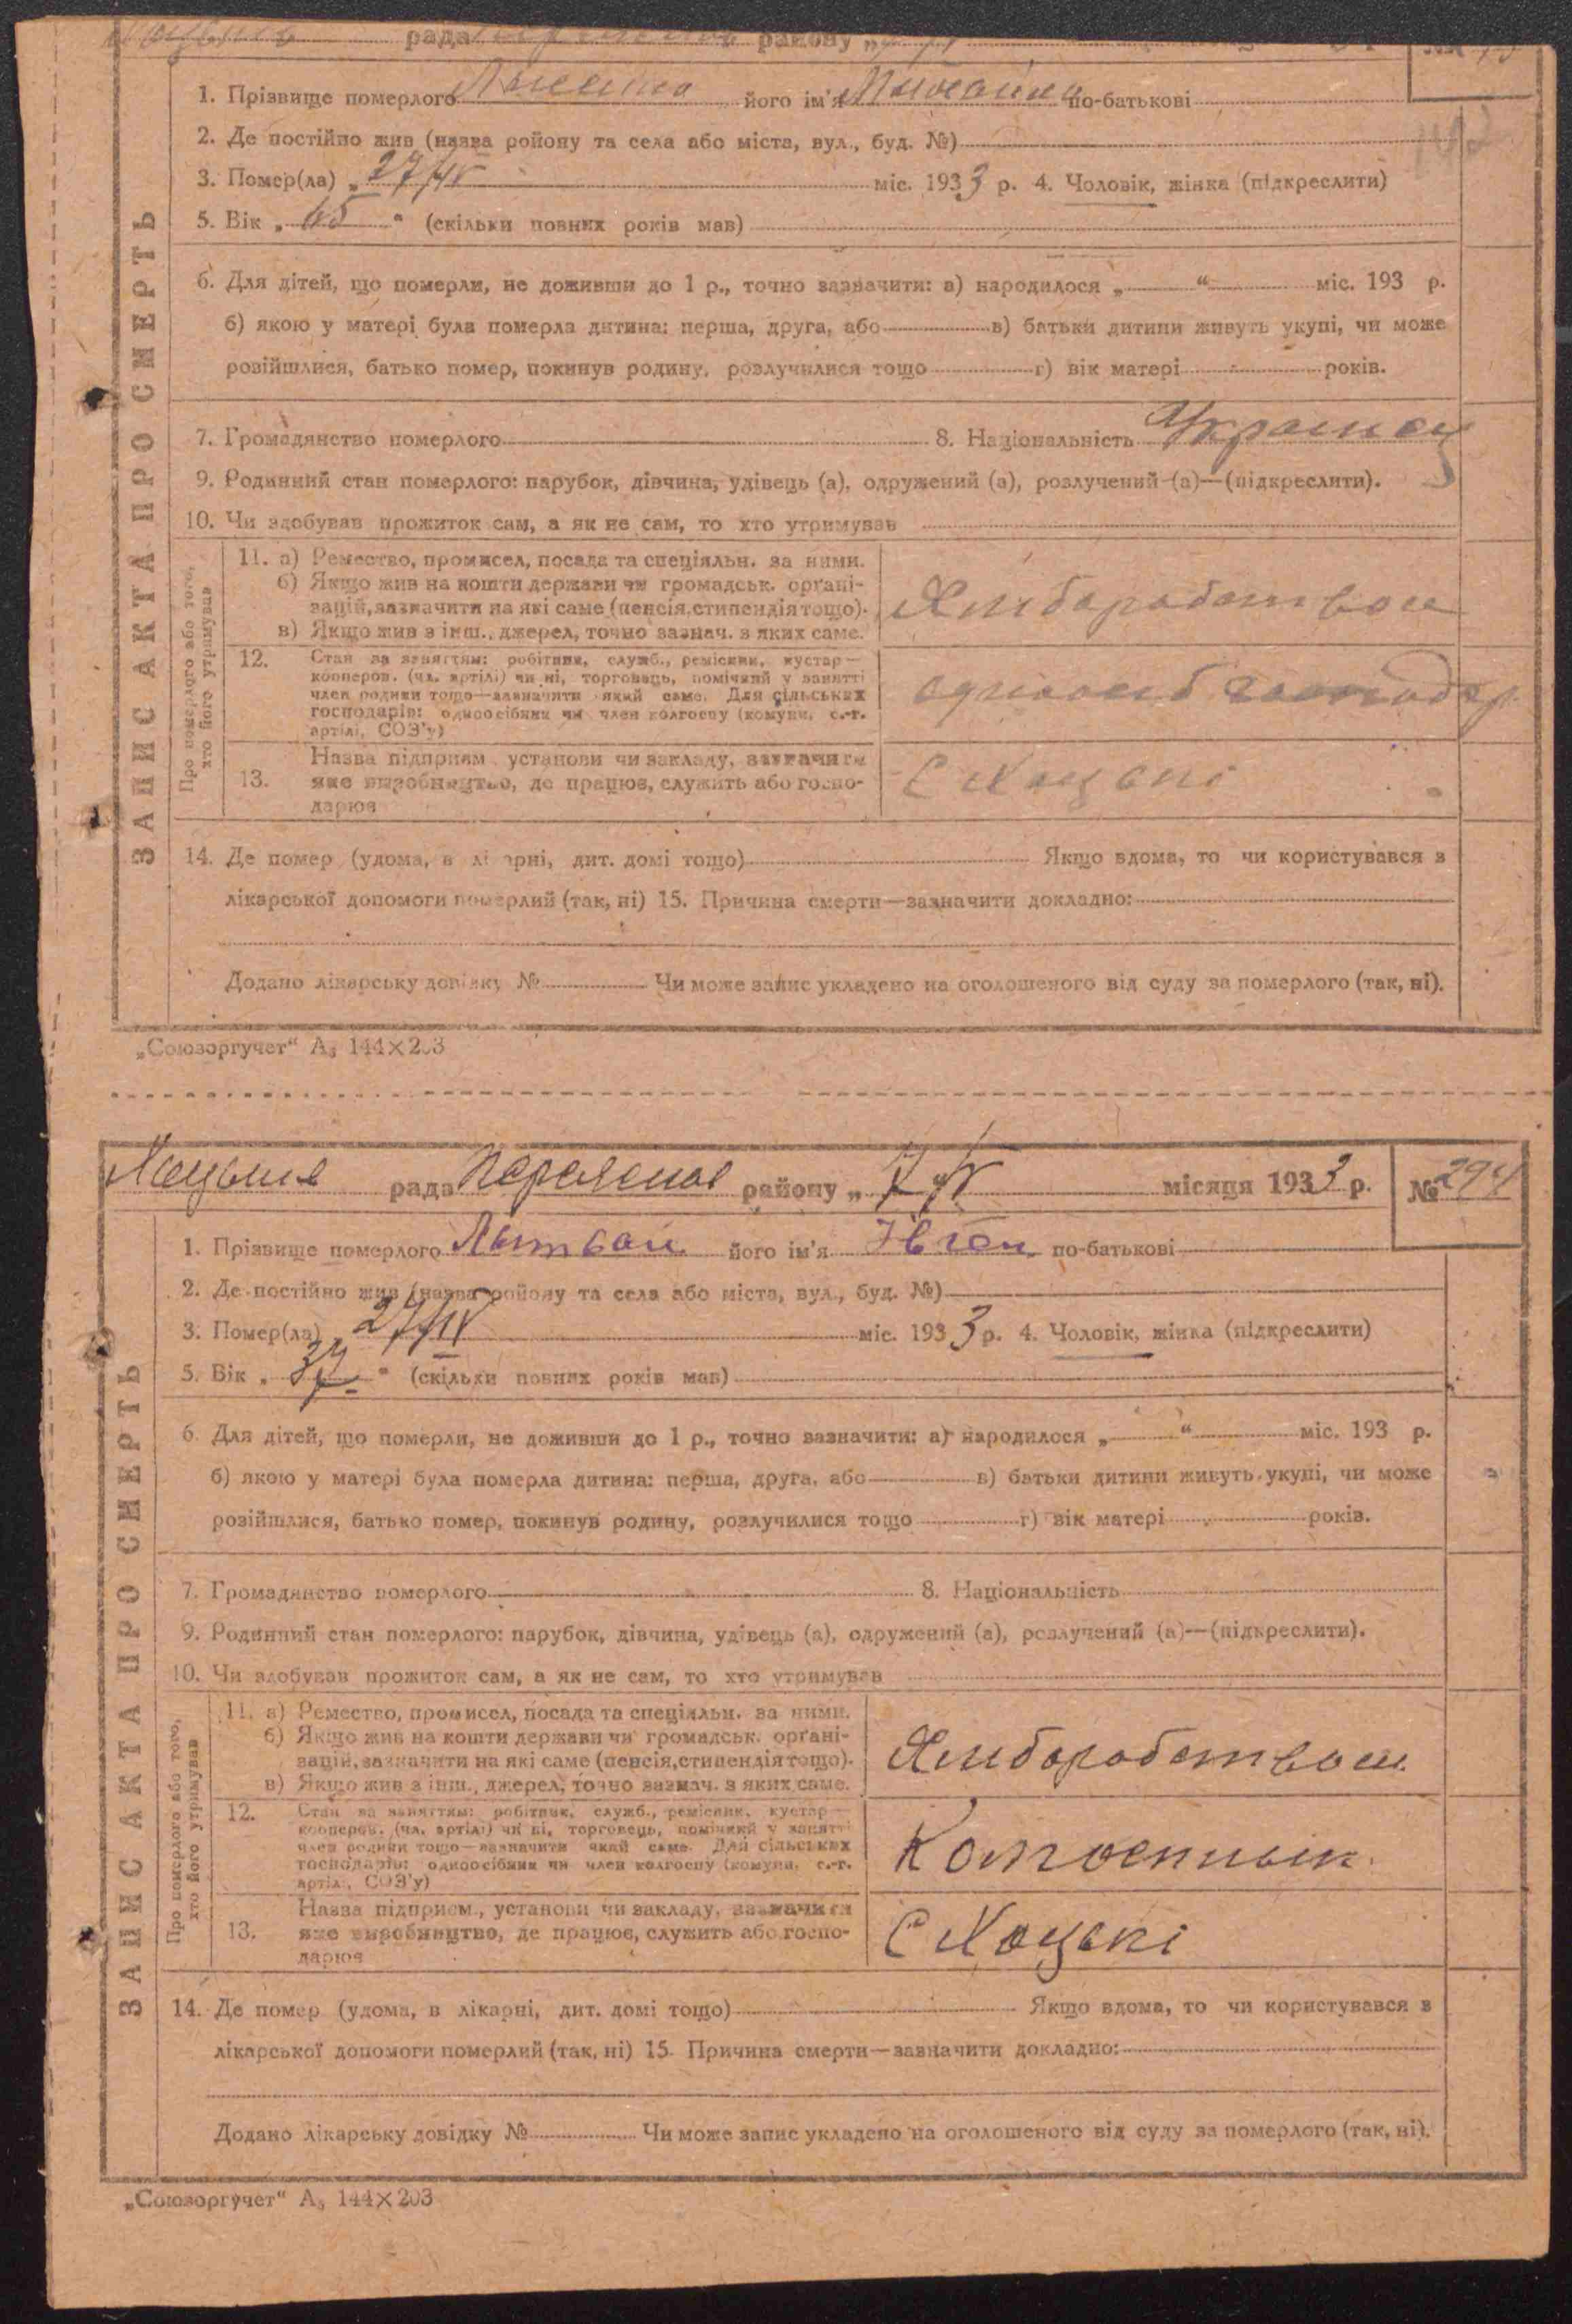 рада району „
1. Прізвище померлого його ім'я Михайло по-батькові
2. Де постійно жив (назва ройону та села або міста, вул., буд. №)
3. Помер(ла) „ 27/IV міс. 1933 р. 4. Чоловік, жінка (підкреслити)
5. Вік „ 45 " (скільки повних років мав)
6. Для дітей, що померли, не доживши до 1 р., точно зазначити: а) народилося „ “ міс. 193 р.
б) якою у матері була померла дитина: перша, друга, або в) батьки дитини живуть укупі, чи може
розійшлися, батько помер, покинув родину, розлучилися тощо г) вік матері років.
7. Громадянство померлого 8. Національність Украинец
9. Родинний стан померлого: парубок, дівчина, удівець (а), одружений (а), розлучений (а)—(підкреслити).
10. Чи здобував прожиток сам, а як не сам, то хто утримував
ЗАПИС АКТА ПРО СМЕРТЬ
Про померлого або того,
хто його утримував
11. а) Ремество, промисел, посада та спеціяльн. за ними.
б) Якщо жив на кошти держави чи громадськ. органі-
зацій, зазначити на які саме (пенсія, стипендія тощо).
в) Якщо жив з інш., джерел, точно зазнач. з яких саме.
Хлиборобством
12. Стан за заняттям: робітник, служб., ремісник, кустар—
кооперов. (чл. артілі) чи ні, торговець, помічний у занятті
член родини тощо—зазначити який саме. Для сільських
господарів: одноосібник чи член колгоспу (комуни, с.-г.
артілі, СОЗ'у)
одноосіб господар
13. Назва підприєм., установи чи закладу, зазначити
яке виробництво, де працює, служить або госпо-
дарює
С Хоцькі
14. Де помер (удома, в лікарні, дит. домі тощо) Якщо вдома, то чи користувався з
лікарської допомоги померлий (так, ні) 15. Причина смерти—зазначити докладно:
Додано лікарську довідку № Чи може запис укладено на оголошеного від суду за померлого (так, ні).
„Союзоргучет“ А₅ 144×203
Хоцька рада Переяслов району „ 7/V місяця 1933 р. № 294
1. Прізвище померлого Литвин його ім'я Івген по-батькові
2. Де постійно жив (назва ройону та села або міста, вул., буд. №)
3. Помер(ла) „ 27/IV міс. 1933 р. 4. Чоловік, жінка (підкреслити)
5. Вік „ 37 " (скільки повних років мав)
6. Для дітей, що померли, не доживши до 1 р., точно зазначити: а) народилося „ “ міс. 193 р.
б) якою у матері була померла дитина: перша, друга, або в) батьки дитини живуть укупі, чи може
розійшлися, батько помер, покинув родину, розлучилися тощо г) вік матері років.
7. Громадянство померлого 8. Національність
9. Родинний стан померлого: парубок, дівчина, удівець (а), одружений (а), розлучений (а)—(підкреслити).
10. Чи здобував прожиток сам, а як не сам, то хто утримував
ЗАПИС АКТА ПРО СМЕРТЬ
Про померлого або того,
хто його утримував
11. а) Ремество, промисел, посада та спеціяльн. за ними.
б) Якщо жив на кошти держави чи громадськ. органі-
зацій, зазначити на які саме (пенсія, стипендія тощо).
в) Якщо жив з інш., джерел, точно зазнач. з яких саме.
Хлиборобством
12. Стан за заняттям: робітник, служб., ремісник, кустар—
кооперов. (чл. артілі) чи ні, торговець, помічний у занятті
член родини тощо—зазначити який саме. Для сільських
господарів: одноосібник чи член колгоспу (комуни, с.-г.
артілі, СОЗ'у)
Колгоспнык
13. Назва підприєм., установи чи закладу, зазначити
яке виробництво, де працює, служить або госпо-
дарює
С Хоцькі
14. Де помер (удома, в лікарні, дит. домі тощо) Якщо вдома, то чи користувався з
лікарської допомоги померлий (так, ні) 15. Причина смерти—зазначити докладно:
Додано лікарську довідку № Чи може запис укладено на оголошеного від суду за померлого (так, ні).
„Союзоргучет“ А₅ 144×203